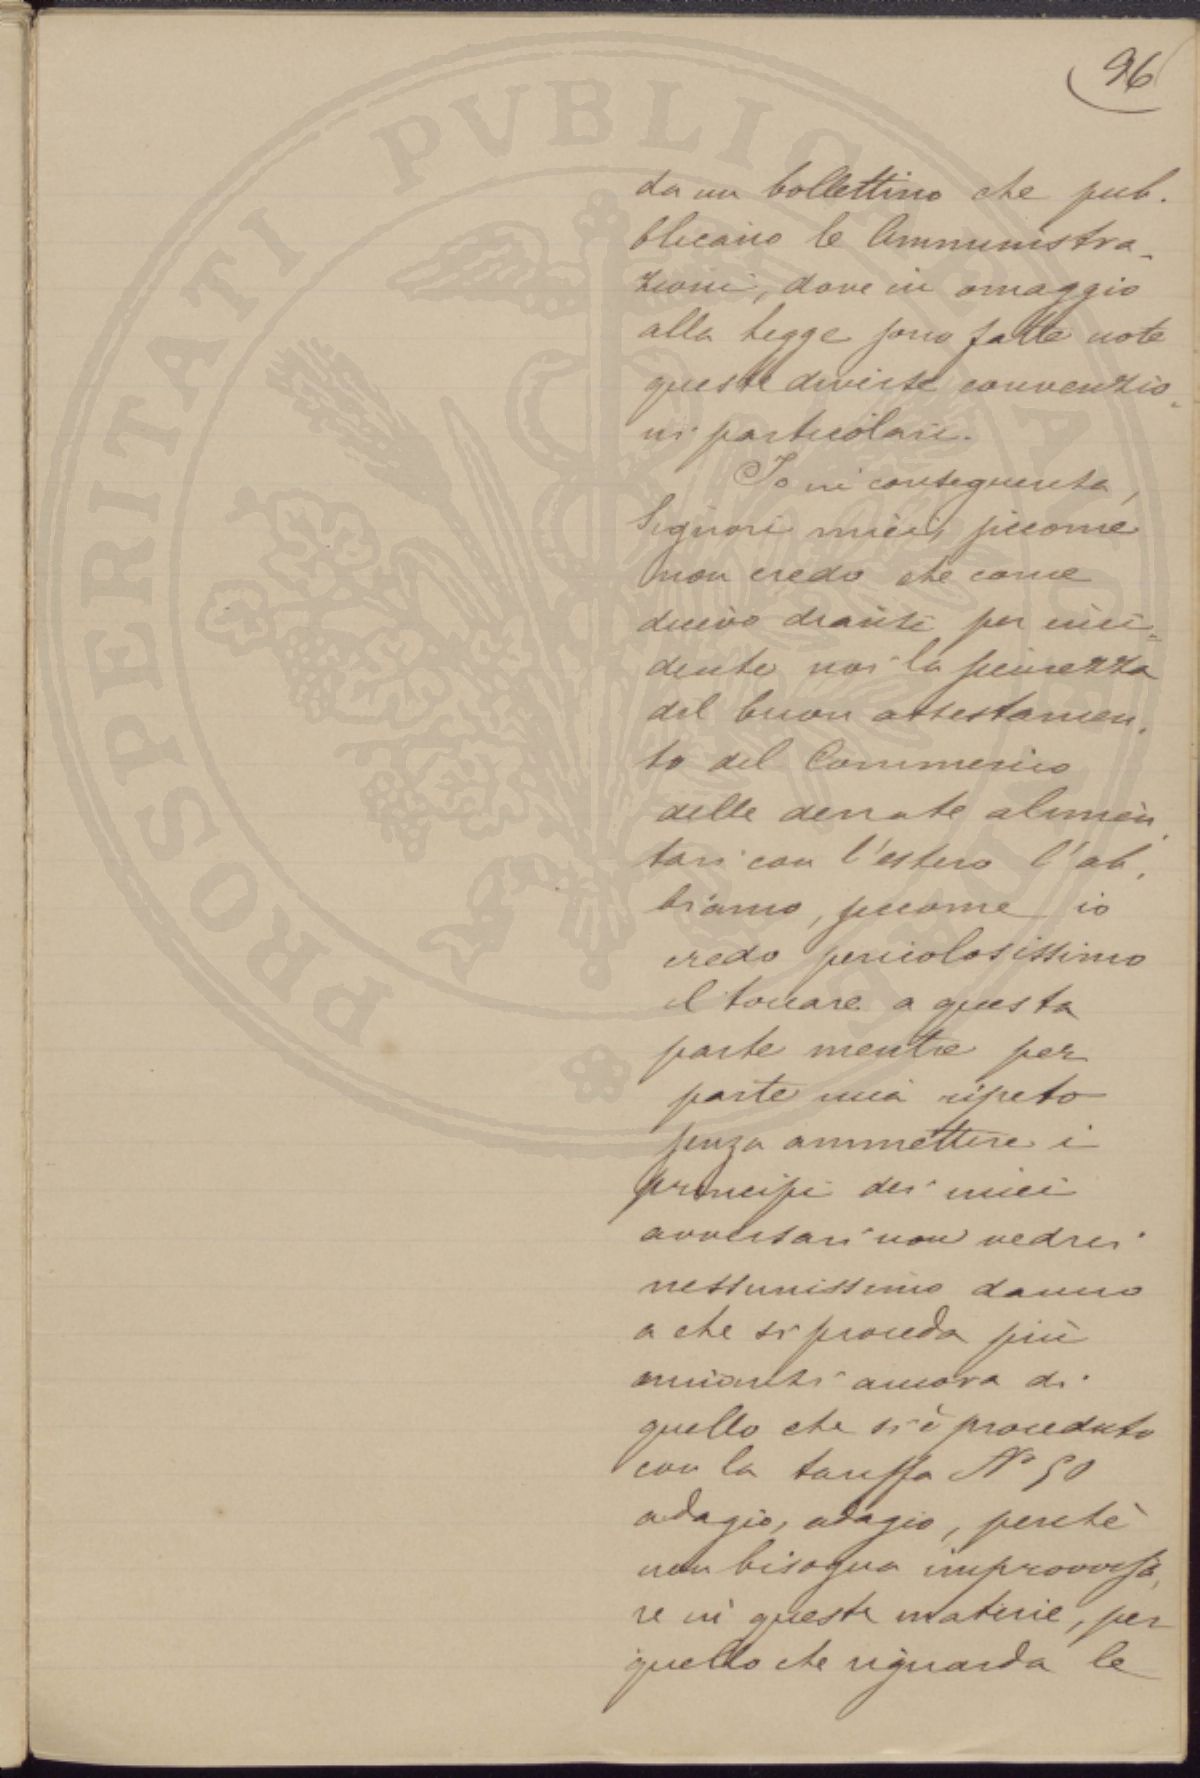 96
PROSPERITATI PVBLICAE AVGENDAE
da un bollettino che pub-
blicano le Amministra-
zioni, dove in omaggio
alla legge sono fatte note
queste diverse convenzio-
ni particolari.
Io in conseguenza,
Signori miei, siccome
non credo che come
dicevo dianzi per inci-
dente noi la sicurezza
del buon assestamen-
to del Commercio
delle derrate alimen-
tari con l'estero l'ab-
biamo, siccome io
credo pericolosissimo
il toccare a questa
parte mentre per
parte mia ripeto
senza ammettere i
principi dei miei
avversari non vedrei
nessunissimo danno
a che si proceda più
innanti ancora di
quello che si è proceduto
con la tariffa N° 50
adagio, adagio, perchè
non bisogna improvvisa-
re in queste materie, per
quello che riguarda le